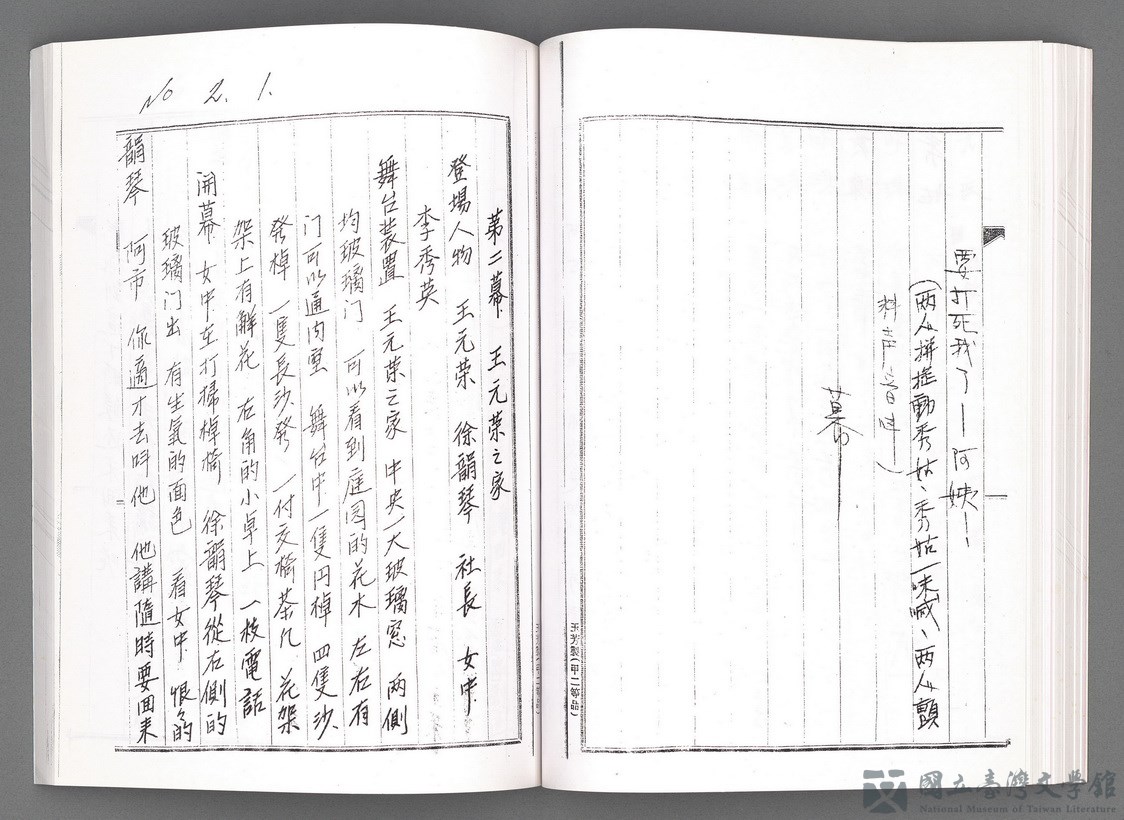 要打死我了—阿姨—
(兩人拼搖動秀姑、秀姑一味喊、兩人顫
料声音
幕
玉芳製(甲二等品)
No 2. 1.
第二幕 王元荣之家
登場人物 王元荣 徐韻琴 社長 女中
李秀英
舞台装置 王元荣之家 中央一大玻璃窓 兩側
均玻璃门 可以看到庭园的花木 左右有
门可以通內室 舞台中一隻円棹 四隻沙
発棹 一隻長沙発 一付交椅茶几 花架
架上有鮮花 右角的小卓上 一枝電話
開幕 女中在打掃棹椅 徐韻琴從右側的
玻璃门出 有生氣的面色 看女中 恨々的
韻琴 阿市 你適才去叫他 他講隨時要回来
國立臺灣文學館
National Museum of Taiwan Literature